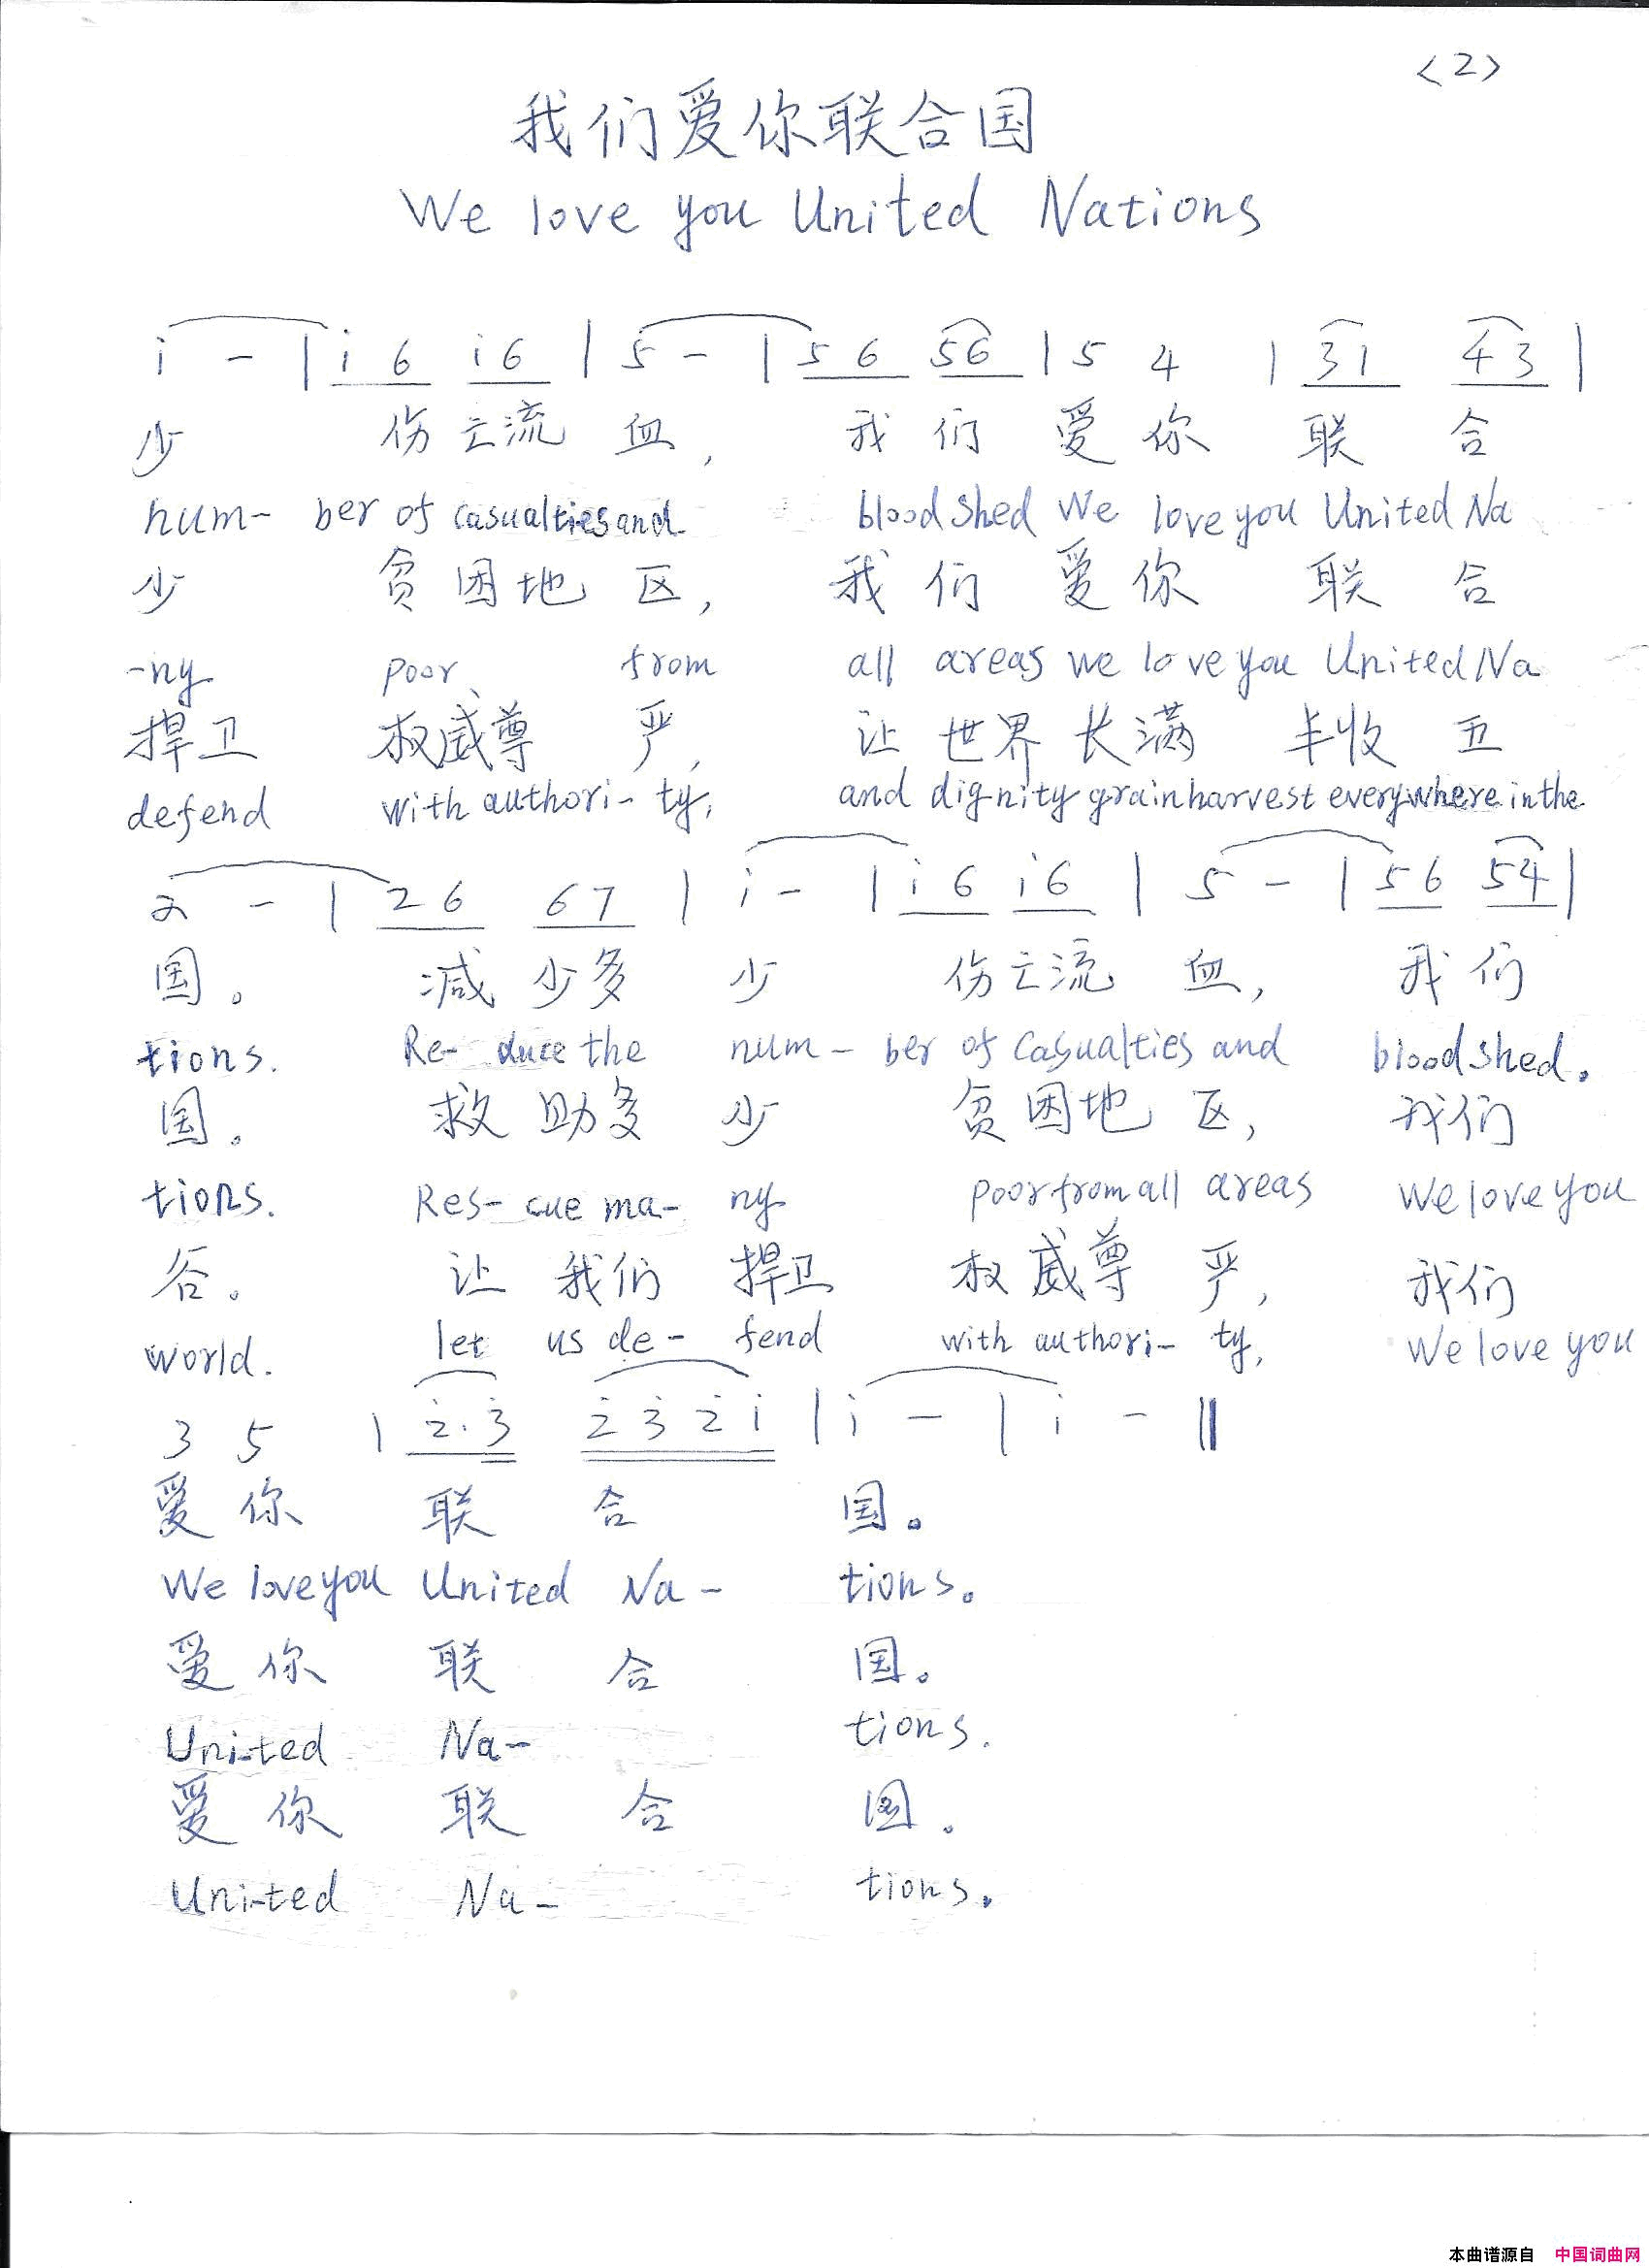 <2>
我们爱你联合国
We love you United Nations
i - | i 6 i 6 | 5 - | 5 6 5 6 | 5 4 | 3 1 4 3 |
少 伤亡流 血, 我 们 爱 你 联 合
num- ber of casualties and bloodshed We love you United Na
少 贫 困 地 区, 我 们 爱 你 联 合
-ny poor from all areas we love you United Na
捍卫 权威尊 严, 让 世界 长满 丰收 五
defend with authori- ty, and dignity grain harvest everywhere in the
2 - | 2 6 6 7 | i - | i 6 i 6 | 5 - | 5 6 5 4 |
国。 减 少多 少 伤亡流 血, 我 们
tions. Re- duce the num- ber of casualties and bloodshed.
国。 救 助多 少 贫困地 区, 我们
tions. Res- cue ma- ny poor from all areas We love you
谷。 让 我们 捍卫 权威尊 严, 我们
world. let us de- fend with authori- ty, We love you
3 5 | 2̇ · 3̇ 2̇ 3̇ 2̇ i | i - | i - ‖
爱 你 联 合 国。
We love you United Na- tions.
爱 你 联 合 国。
Uni-ted Na- tions.
爱 你 联 合 国.
Uni-ted Na- tions.
本曲谱源自 中国词曲网